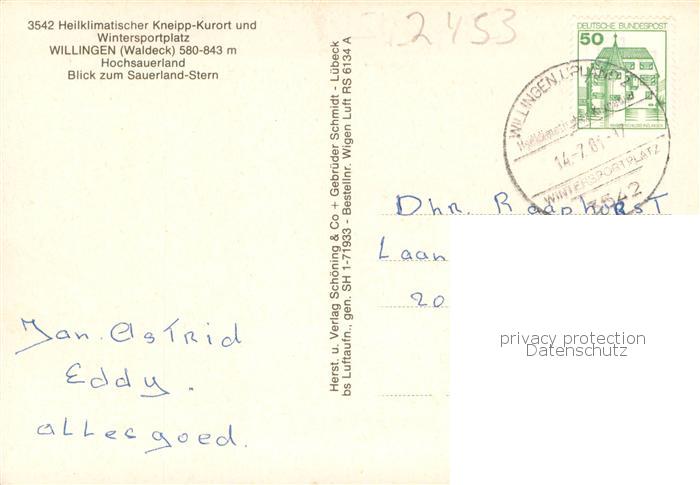 3542 Heilklimatischer Kneipp-Kurort und
Wintersportplatz
WILLINGEN (Waldeck) 580-843 m
Hochsauerland
Blick zum Sauerland-Stern
2453
DEUTSCHE BUNDESPOST
50
WILLINGEN, UPLAND 2
14.-7.81-17
WINTERSPORTPLATZ
3542
Herst. u. Verlag Schöning & Co + Gebrüder Schmidt - Lübeck
bs Luftaufn., gen. SH 1-71933 - Bestellnr. Wigen Luft RS 6134 A
Dhr. Raaphorst
Laan
20
Jan. Astrid
Eddy.
alles goed.
privacy protection
Datenschutz